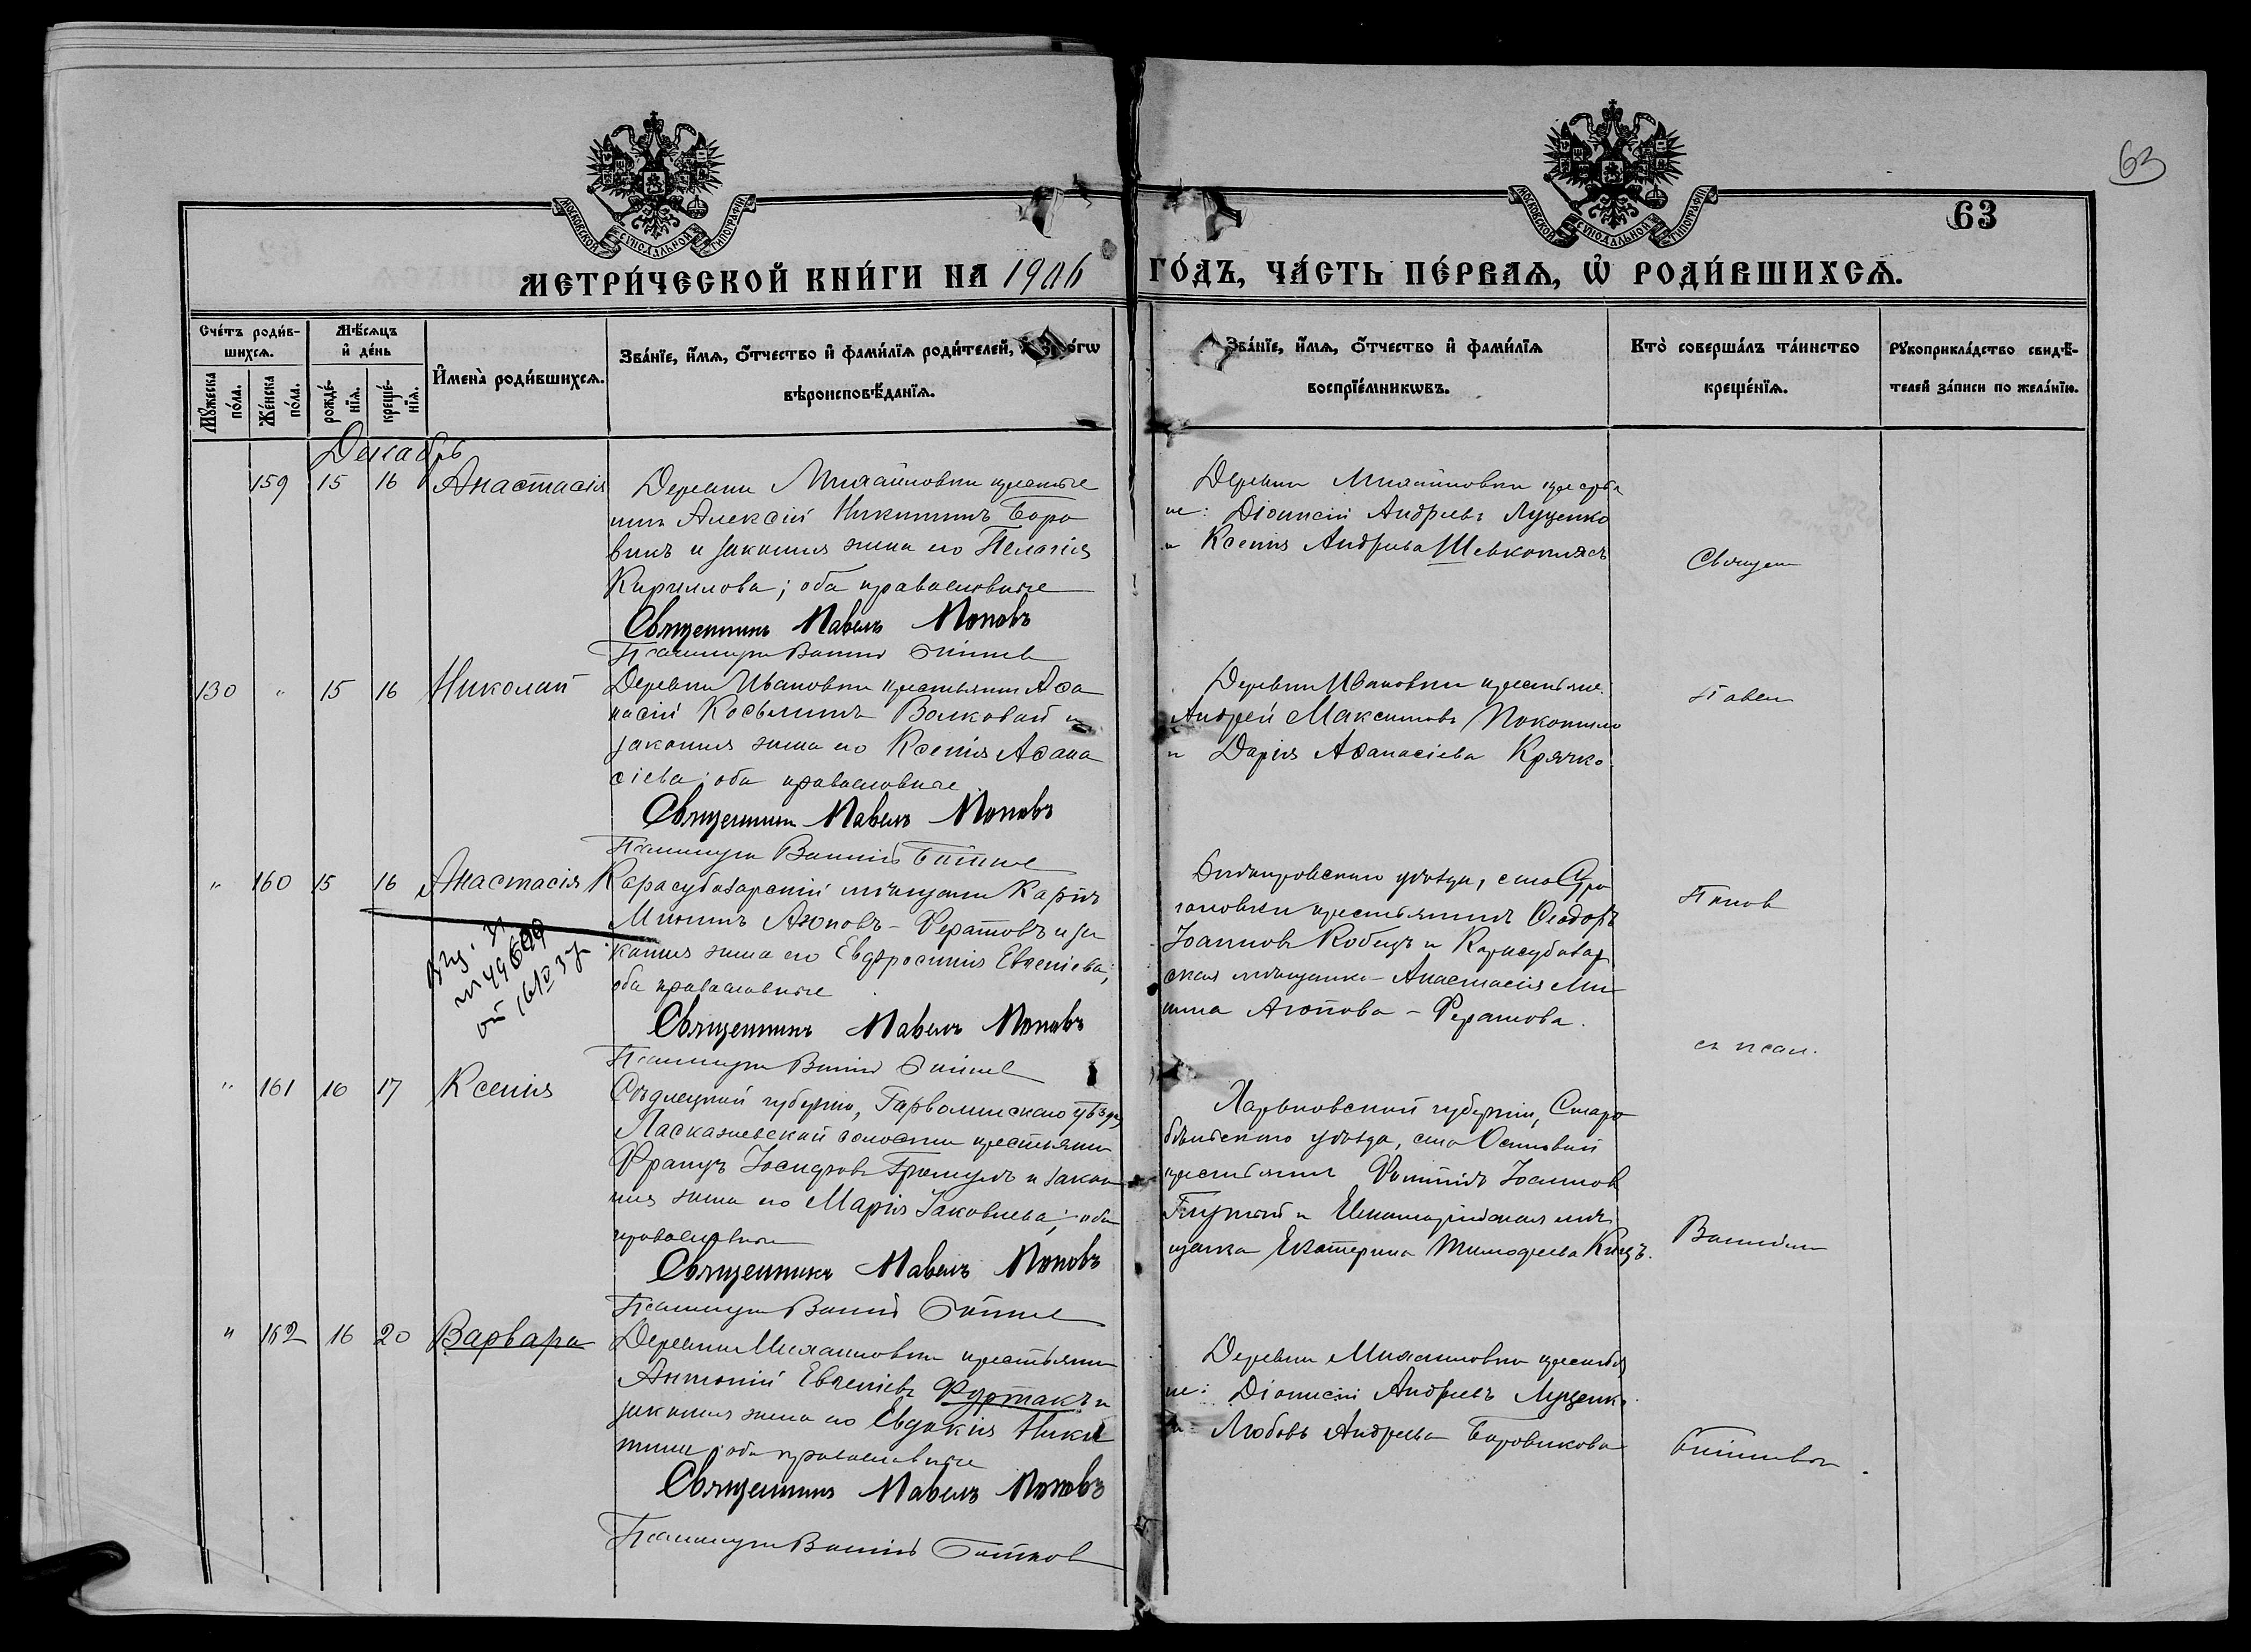 63
63
МОСКОВСКОЙ СѴНОДАЛЬНОЙ ТИПОГРАФІИ
МОСКОВСКОЙ СѴНОДАЛЬНОЙ ТИПОГРАФІИ
МЕТРИ́ЧЕСКОЙ КНИ́ГИ НА 1906 ГО́ДЪ, ЧА́СТЬ ПЕ́РВАѦ, Ѡ҆ РОДИ́ВШИХСѦ.
Сче́тъ роди́в-
шихсѧ.
Мꙋ́жеска по́ла.
Же́нска по́ла.
Мѣ́сѧцъ
и҆ де́нь
рожде́-
нїѧ.
креще́-
нїѧ.
И҆мена̀ роди́вшихсѧ.
Зва́нїе, и҆́мѧ, ѻ҆́тчество и҆ фами́лїѧ роди́телей,
вѣроисповѣ́данїѧ.
Зва́нїе, и҆́мѧ, ѻ҆́тчество и҆ фами́лїѧ
воспрїе́мникѡвъ.
Кто̀ соверша́лъ та́инство
креще́нїѧ.
Рꙋкоприкла́дство свидѣ́-
телей за́писи по жела́нїю.
Декабрь
159 15 16 Анастасія
Деревни Михайловки крестья
нинъ Алексій Никитинъ Боро
викъ и законная жена его Пелагія
Кириллова; оба православные
Священникъ Павелъ Поповъ
Деревни Михайловки крестья
не: Діонисій Андреевъ Луценко
и Ксенія Андреева Шевкоплясъ
Священ
130 " 15 16 Николай
Деревни Ивановки крестьянинъ Аѳа
насій Косьминъ Волковой и
законная жена его Ксенія Аѳана
сіева; оба православные
Священникъ Павелъ Поповъ
Деревни Ивановки крестьяне:
Андрей Максимовъ Покотило
и Дарія Аѳанасіева Крячко.
Павел
" 160 15 16 Анастасія
Карасубазарскій мѣщанинъ Карпъ
Мининъ Агоповъ-Ѳератовъ и за
конная жена его Евфросинія Евгеніева;
оба православные
Священникъ Павелъ Поповъ
Днѣпровскаго уѣзда, села
крестьянинъ Ѳеодоръ
Іоанновъ Кобецъ и Карасубазар
ская мѣщанка Анастасія Ми
нина Агопова-Ѳератова.
Попов
съ псал.
" 161 16 17 Ксенія
Сѣдлецкой губерніи, Гарволинскаго уѣзда,
Ласкажевской волости крестьянинъ
Францъ Іосифовъ и закон
ная жена его Марія Іаковлева; оба
православные
Священникъ Павелъ Поповъ
Харьковской губерніи, Старо
бѣльскаго уѣзда, села Осиновой
крестьянинъ Іоанновъ
и мѣ
щанка Екатерина Тимоѳеева
" 162 16 20 Варвара
Деревни Михайловки крестьянинъ
Антоній Евгеніевъ Фуртакъ и
законная жена его Евдокія Ники
тина; оба православные
Священникъ Павелъ Поповъ
Деревни Михайловки крестья
не: Діонисій Андреевъ Луценко
и Любовь Андреева Боровикова